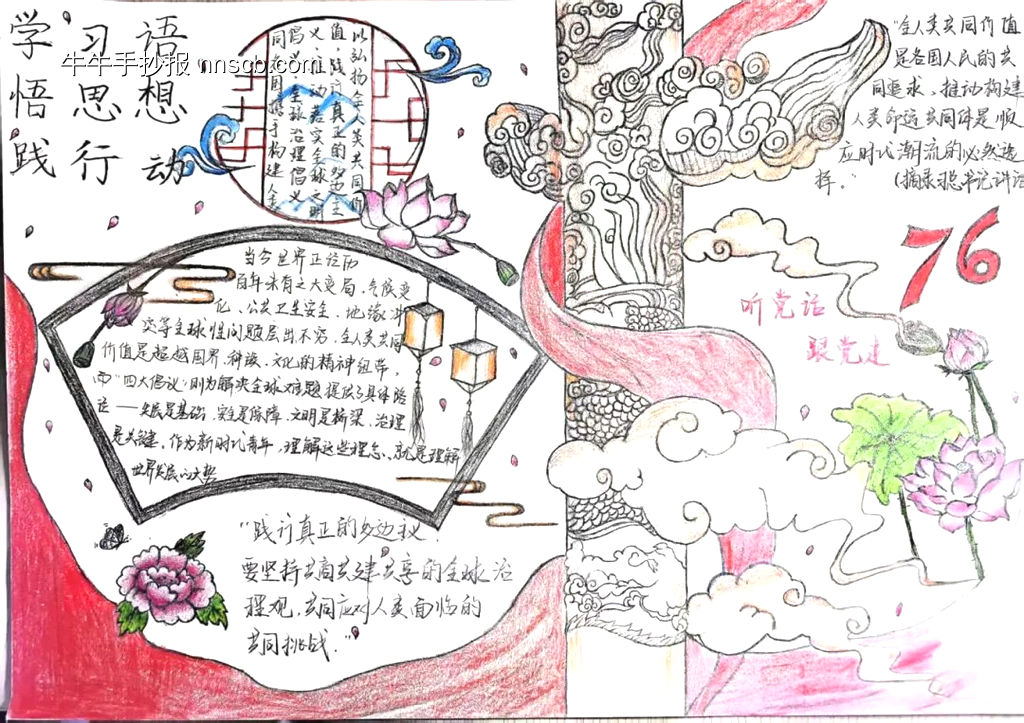 学 习 语
悟 思 想
践 行 动
牛牛手抄报 nnscb.com
以弘扬全人类共同价
值,践行真正的多边主
义、推动落实全球文明
倡议、全球治理倡议
同各国携手构建人类
"全人类共同价值
是各国人民的共
同追求、推动构建
人类命运共同体是顺
应时代潮流的必然选
择。" (摘录习总书记讲话
76
听党话
跟党走
当今世界正经历
百年未有之大变局,气候变
化、公共卫生安全、地缘冲
突等全球性问题层出不穷,全人类共同
价值是超越国界、种族、文化的精神纽带,
而"四大倡议"则为解决全球难题提供了具体路
径——发展是基础,安全是保障,文明是桥梁,治理
是关键。作为新时代青年,理解这些理念、就是理解
世界发展的大势
"践行真正的多边主义,
要坚持共商共建共享的全球治
理观,共同应对人类面临的
共同挑战."